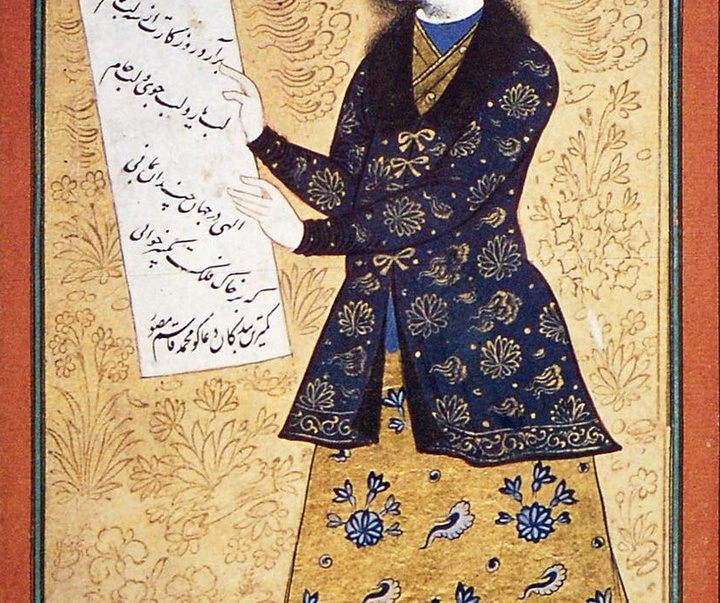 برآرد روزگارت از سه لب کام
لب یار و لب جوی و لب جام
الهی در جهان چندان بمانی
که بر خاک فلک تکبیر خوانی
کمترین بندگان دعاگو محمد قاسم مصور